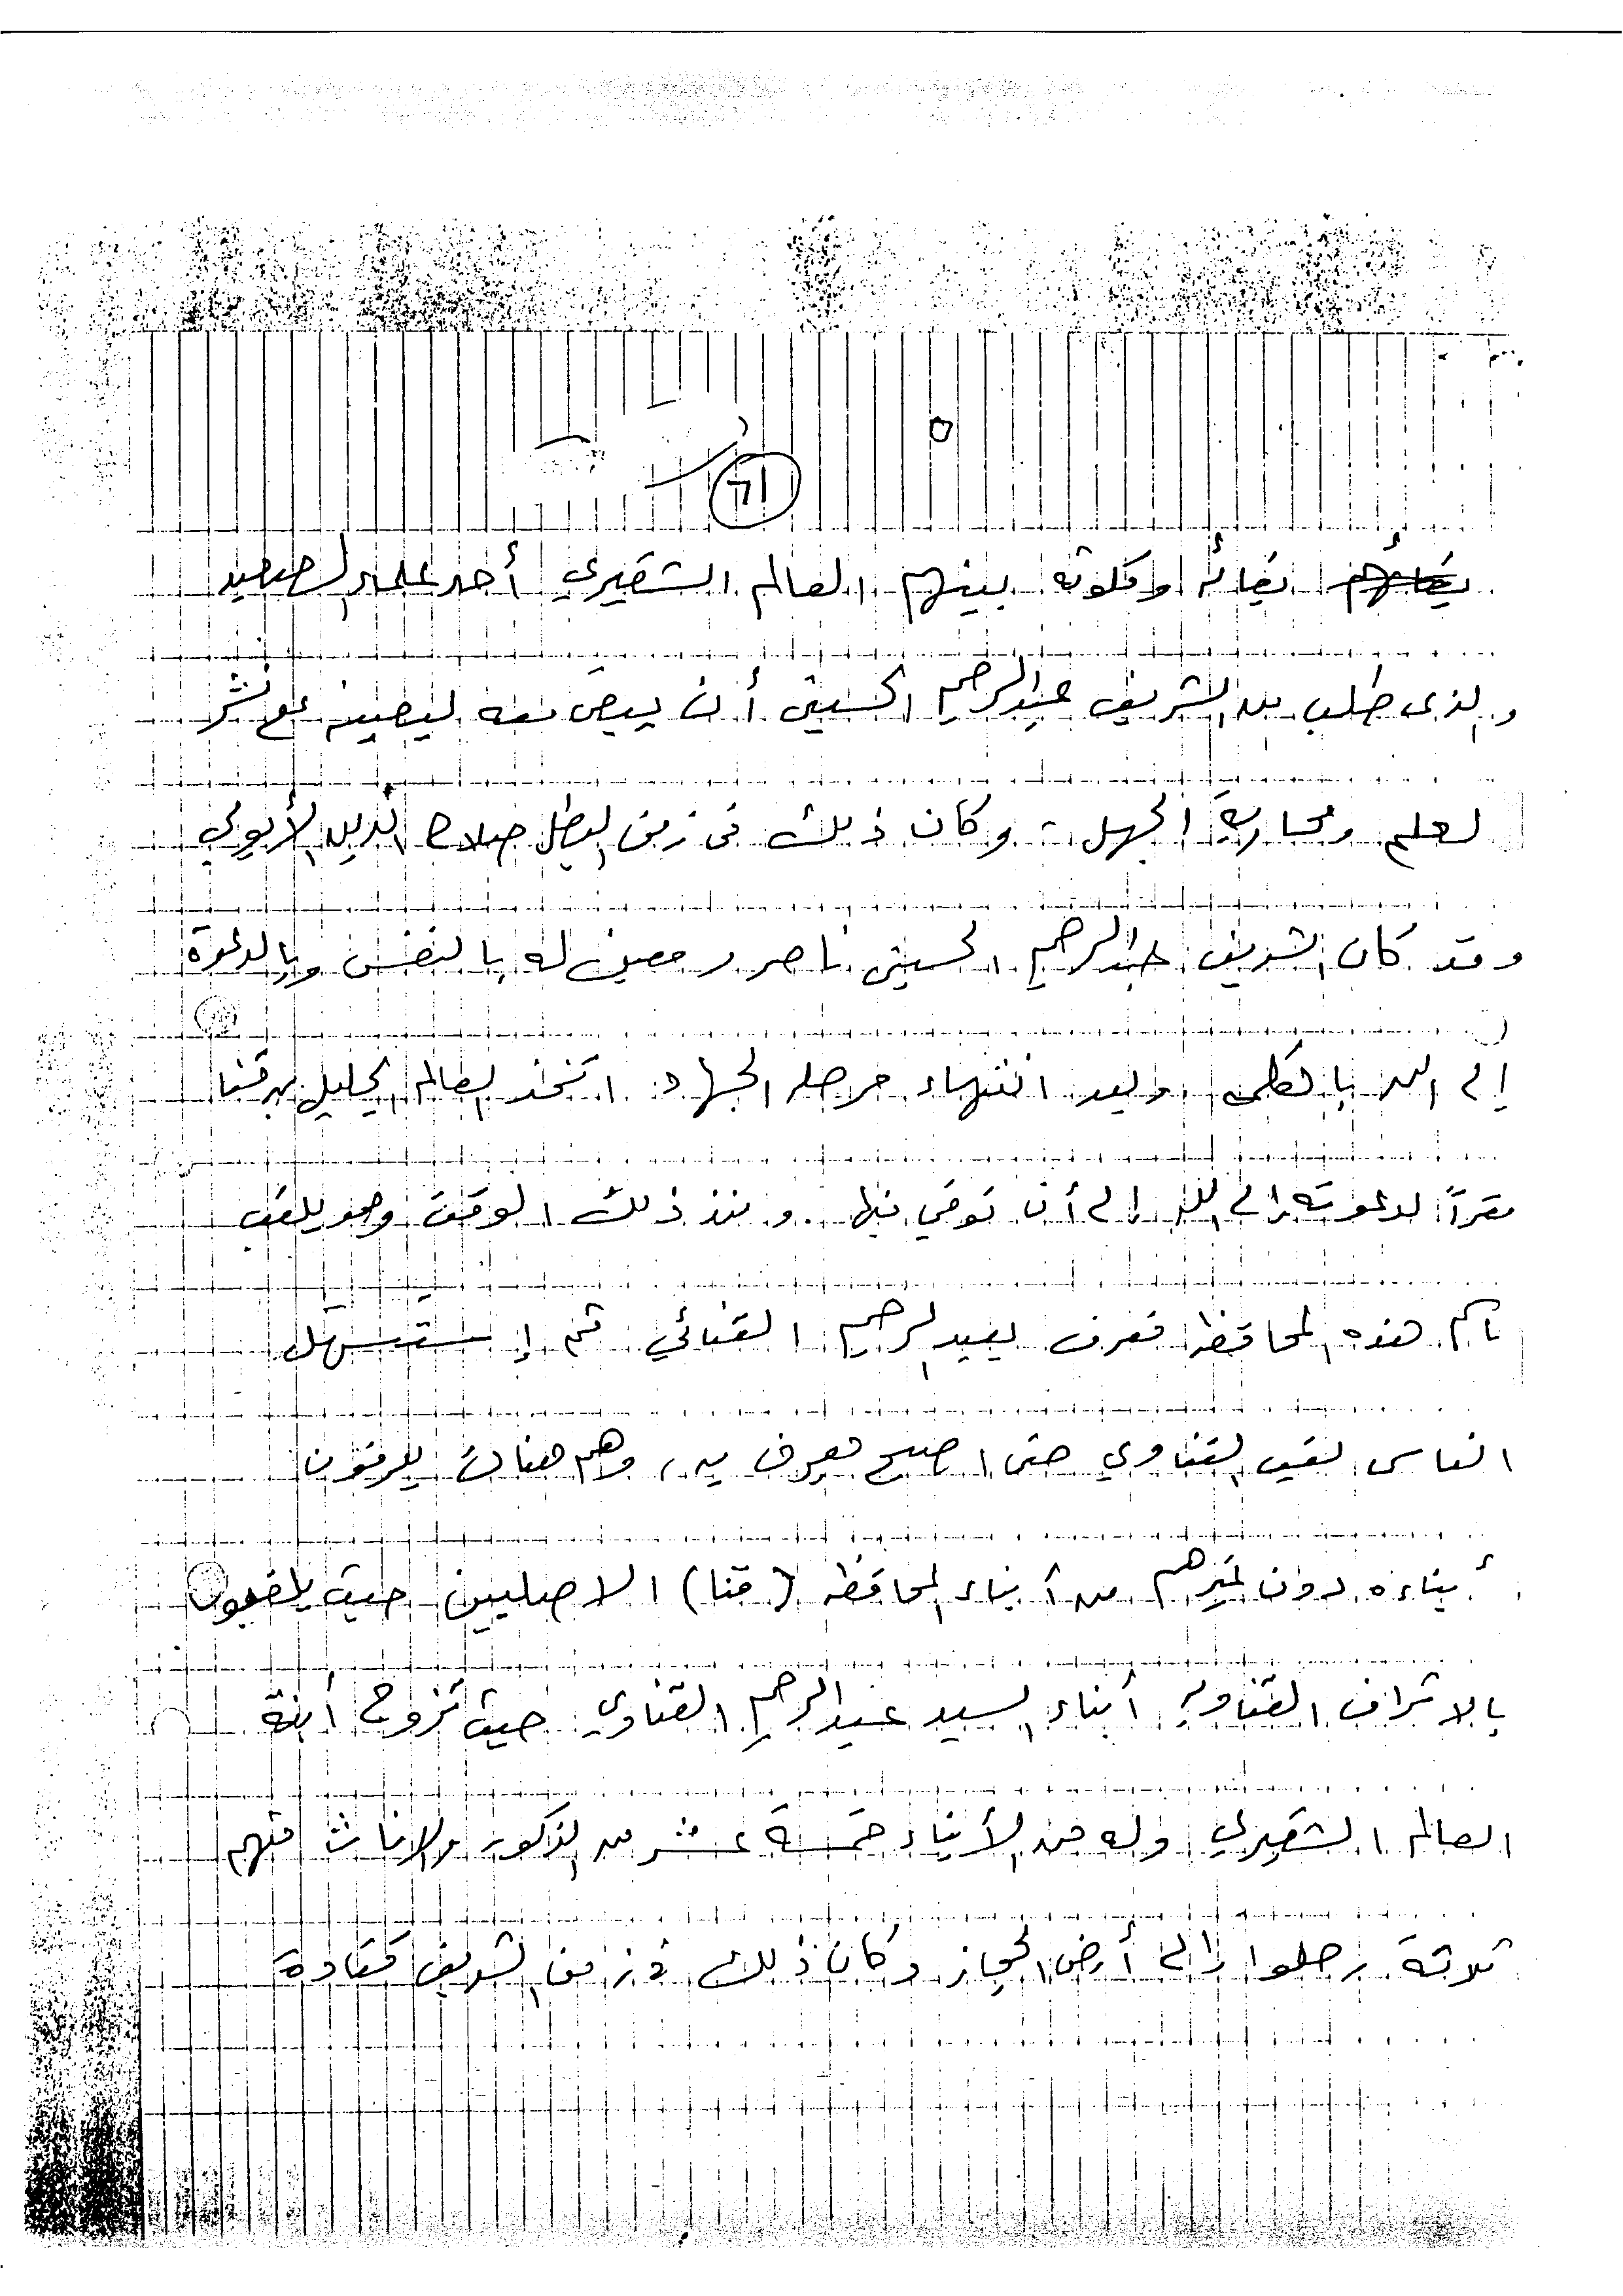 ٦١
بقائه وكونه بينهم العالم الشقيري أحد علماء الصعيد
والذى طلب من الشريف عبدالرحيم الحسيني أن يبقى معه ليعينه على نشر
لعلم ومحاربة الجهل .. وكان ذلك فى زمن البطل صلاح الدين الأيوبي
وقد كان الشريف عبدالرحيم الحسيني ناصر ومعين له بالنفس وبالدعوة
إلى الله بالكلمه . وبعد انتهاء مرحله الجهاد اتخذ العالم الجليل من قنا
مقراً لدعوته إلى الله إلى أن توفي فيها .. ومنذ ذلك الوقت وهو يلقب
باسم هذه المحافظه فعرف بعبدالرحيم القنائي ثم إستسهل
الناس لقب القناوي حتى اصبح يعرف به ، وهم هناك يعرفون
أبناءه دون غيرهم من أبناء المحافظه (قنا) الاصليين حيث يلقبون
بالاشراف القناويه أبناء السيد عبدالرحيم القناوي حيث تزوج أبنة
العالم الشقيري وله من الأبناء خمسة عشر من الذكور والاناث منهم
ثلاثة رحلوا إلى أرض الحجاز وكان ذلك في زمن الشريف قتادة